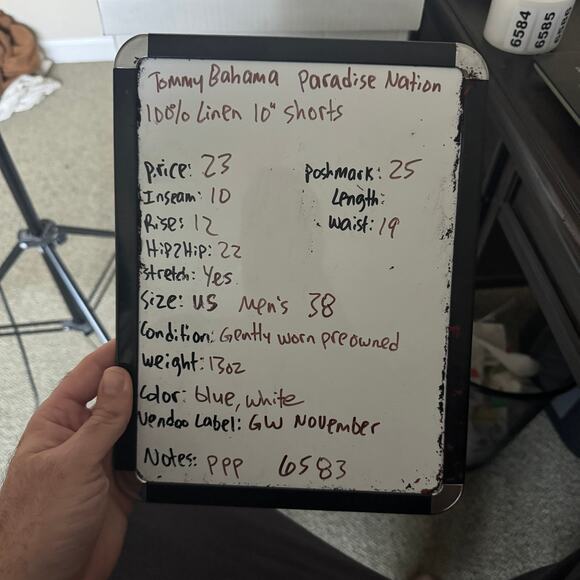 Tommy Bahama Paradise Nation
100% Linen 10" shorts
Price: 23 Poshmark: 25
Inseam: 10 Length:
Rise: 12 Waist: 19
Hip2Hip: 22
Stretch: Yes
Size: US Men's 38
Condition: Gently worn preowned
Weight: 13oz
Color: blue, white
Vendoo Label: GW November
Notes: PPP 6583
6584
6585